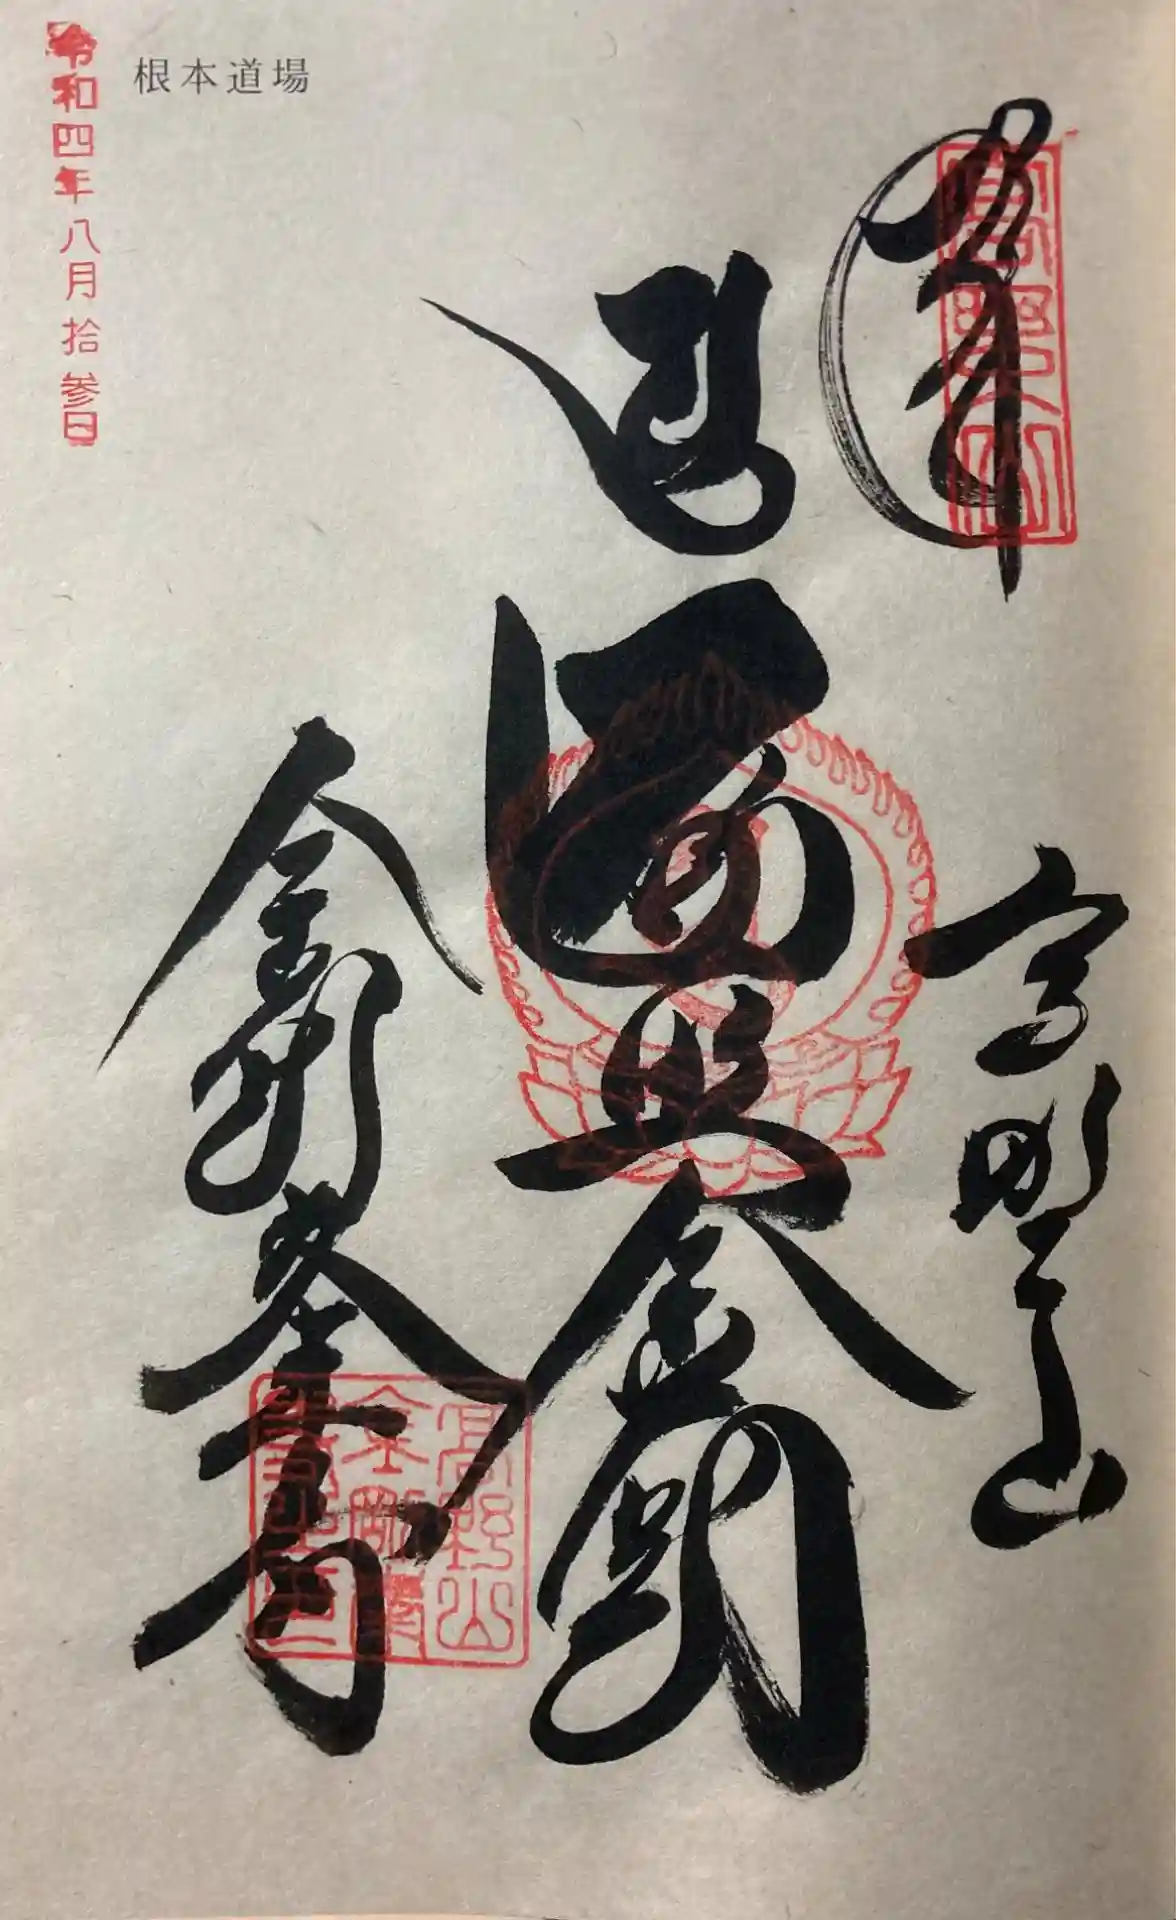 奉拝
高野山
高野山
遍照金剛
金剛峯寺
高野山
根本道場
令和四年八月拾参日